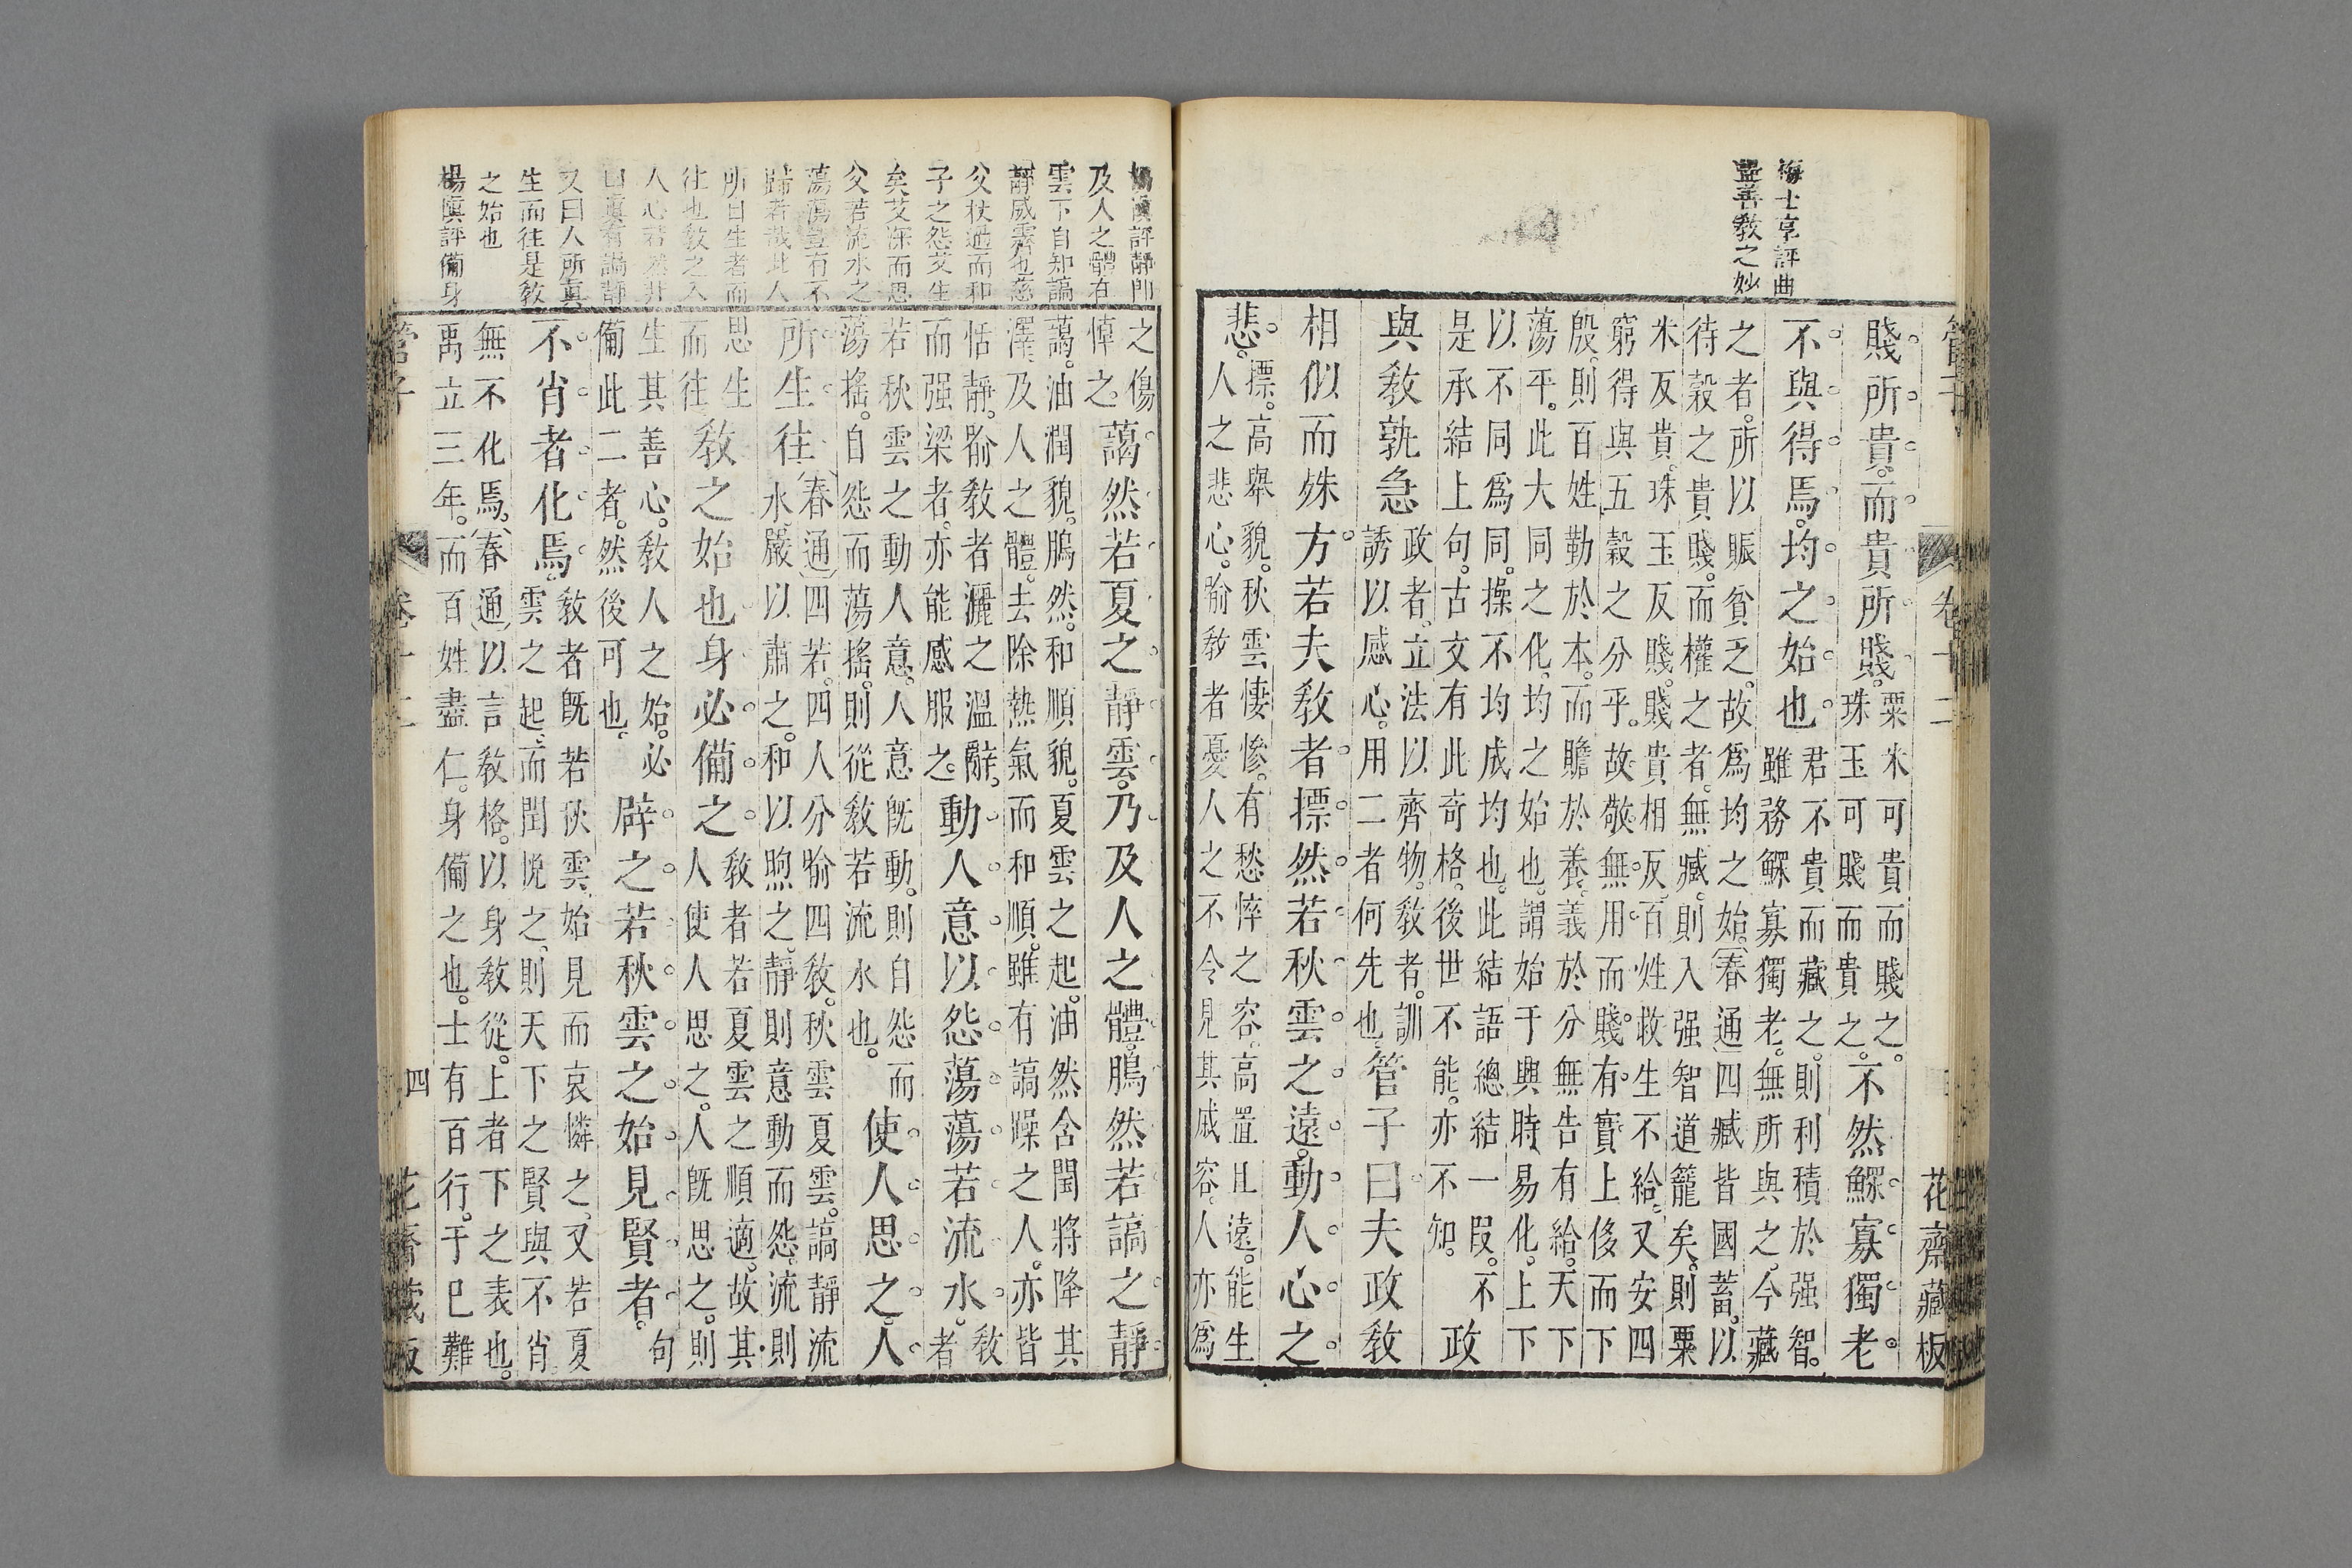 梅士亨評曲
盡善教之妙
管子
卷十二
花齋藏板
賤所貴。而貴所賤。
粟米可貴而賤之。
珠玉可賤而貴之。
不然鰥寡獨老
不與得焉。均之始也。
君不貴而藏之。則利積於强智。
雖務鰥寡獨老。無所與之。今藏
之者。所以賑貧乏。故爲均之始。(春通)四臧皆國蓄。以
待穀之貴賤。而權之者。無臧。則入强智道籠矣。則粟
米反貴。珠玉反賤。賤貴相反。百姓救生不給。又安四
窮得與五穀之分乎。故敬無用。而賤有實。上侈而下
殷。則百姓勤於本。而贍於養。義於分無告有給。天下
蕩平。此大同之化。均之始也。謂始于興時易化。上下
以不同爲同。操不均成均也。此結語總結一叚。不
是承結上句。古文有此奇格。後世不能。亦不知。
政
與教孰急
政者。立法以齊物。教者。訓
誘以感心。用二者何先也。
管子曰夫政教
相似而殊方若夫教者摽然若秋雲之遠。動人心之
悲。
摽。高舉貌。秋雲悽慘。有愁悴之容。高置且遠。能生
人之悲心。喻教者憂人之不令見其戚容。人亦爲
評靜卽
及人之體者
雲下自知謞
靜威霽也慈
父杖過而和
子之怨艾生
矣艾深而思
父若流水之
蕩蕩豈有不
歸者哉此人
所日生者而
往也教之入
人心若然非
曰眞有謞靜
又曰人所眞
生而往是教
之始也
楊愼評備身
之傷
悼之。
藹然若夏之靜雲。乃及人之體。鵰然若謞之靜
藹。油潤貌。鵰然。和順貌。夏雲之起。油然含閏將降其
澤及人之體。去除熱氣而和順。雖有謞躁之人。亦皆
恬靜。喻教者灑之溫辭。
而强梁者。亦能感服之。
動人意以怨蕩蕩若流水。
教
者
若秋雲之動人意。人意既動。則自怨而
蕩搖。自怨而蕩搖。則從教若流水也。
使人思之。人
所生往
(春通)四若。四人分喻四教。秋雲夏雲。謞靜流
水嚴以肅之。和以煦之。靜則意動而怨。流則
思生
而往
教之始也身必備之
教者若夏雲之順適。故其
人使人思之。人既思之。則
生其善心。教人之始。必
備此二者。然後可也。
辟之若秋雲之始見賢者。
句
不肖者化焉。
教者既若秋雲始見而哀憐之。又若夏
雲之起。而閏悅之。則天下之賢與不肖
無不化焉。(春通)以言教格。以身教從。上者下之表也。
禹立三年。而百姓盡仁。身備之也。士有百行。于已難
管子
卷十二
四
花齋藏板